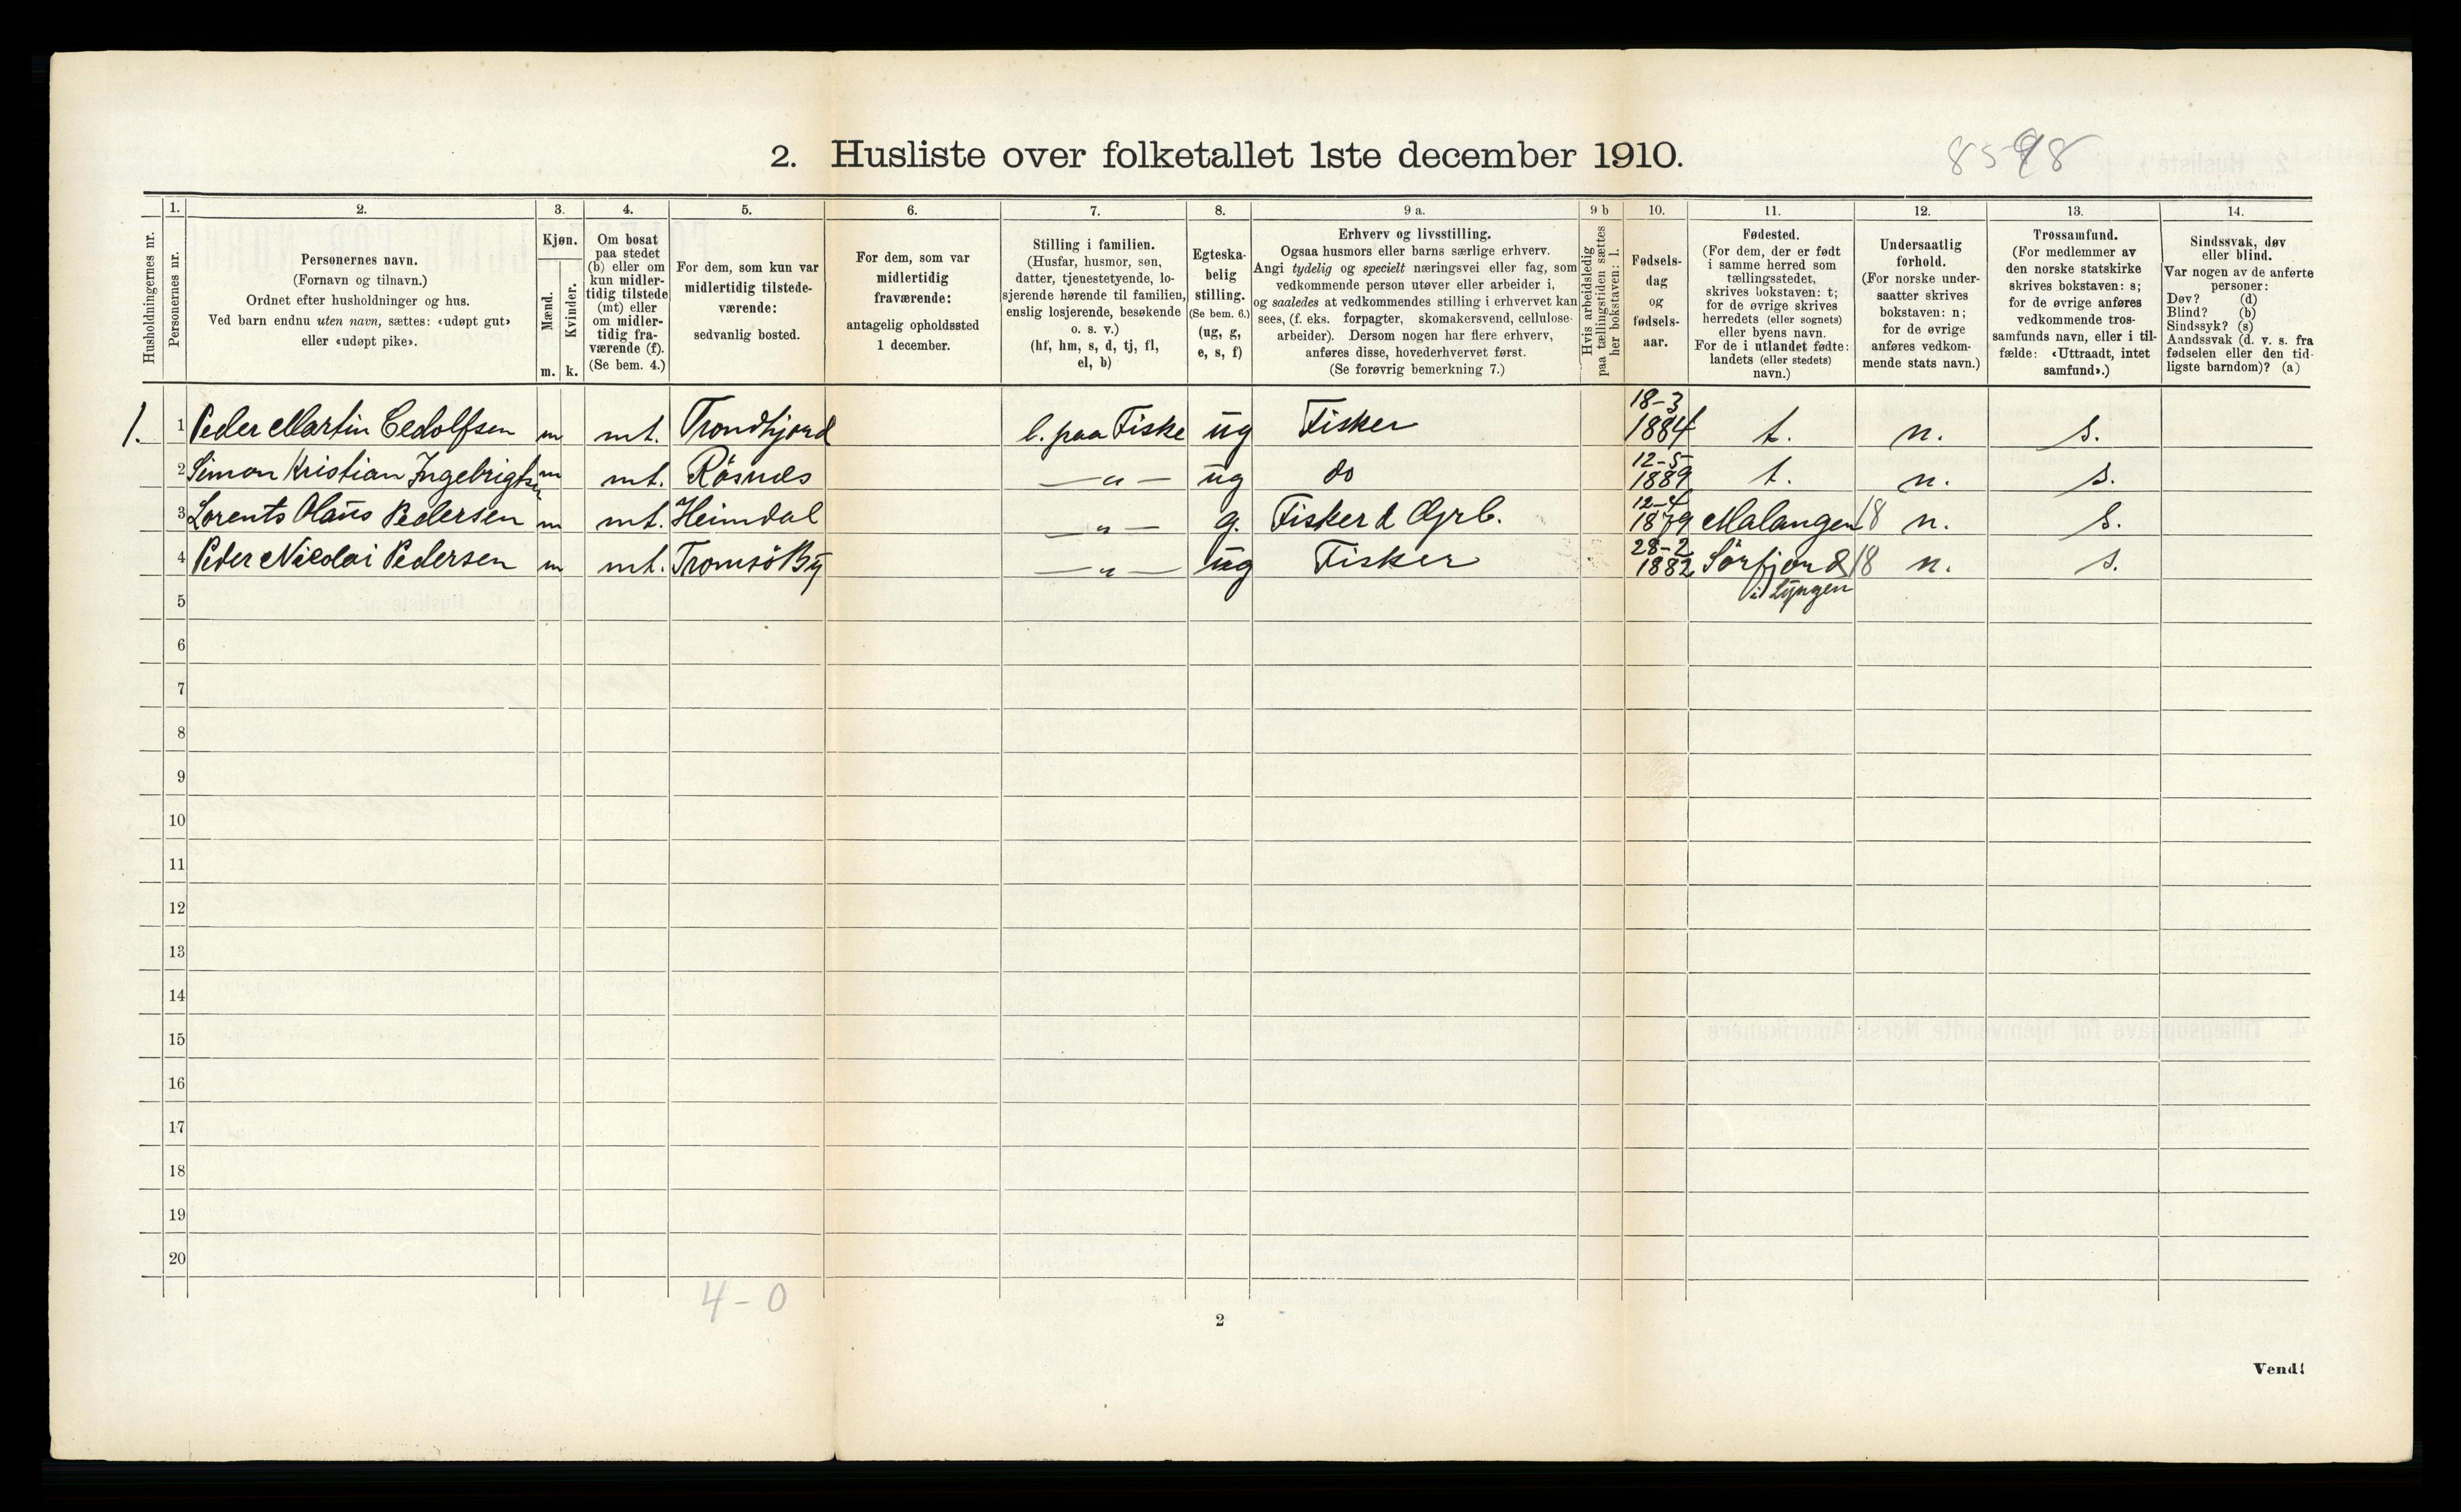 2. Husliste over folketallet 1ste december 1910.
8598
Husholdningernes nr.
1.
Personernes nr.
2.
Personernes navn.
(Fornavn og tilnavn.)
Ordnet efter husholdninger og hus.
Ved barn endnu uten navn, sættes: «udøpt gut»
eller «udøpt pike».
3.
Kjøn.
Mænd.
Kvinder.
m. k.
4.
Om bosat
paa stedet
(b) eller om
kun midler-
tidig tilstede
(mt) eller
om midler-
tidig fra-
værende (f).
(Se bem. 4.)
5.
For dem, som kun var
midlertidig tilstede-
værende:
sedvanlig bosted.
6.
For dem, som var
midlertidig
fraværende:
antagelig opholdssted
1 december.
7.
Stilling i familien.
(Husfar, husmor, søn,
datter, tjenestetyende, lo-
sjerende hørende til familien,
enslig losjerende, besøkende
o. s. v.)
(hf, hm, s, d, tj, fl,
el, b)
8.
Egteska-
belig
stilling.
(Se bem. 6.)
(ug, g,
e, s, f)
9 a.
Erhverv og livsstilling.
Ogsaa husmors eller barns særlige erhverv.
Angi tydelig og specielt næringsvei eller fag, som
vedkommende person utøver eller arbeider i,
og saaledes at vedkommendes stilling i erhvervet kan
sees, (f. eks. forpagter, skomakersvend, cellulose-
arbeider). Dersom nogen har flere erhverv,
anføres disse, hovederhvervet først.
(Se forøvrig bemerkning 7.)
9 b
Hvis arbeidsledig
paa tællingstiden sættes
her bokstaven: l.
10.
Fødsels-
dag
og
fødsels-
aar.
11.
Fødested.
(For dem, der er født
i samme herred som
tællingsstedet,
skrives bokstaven: t;
for de øvrige skrives
herredets (eller sognets)
eller byens navn.
For de i utlandet fødte:
landets (eller stedets)
navn.)
12.
Undersaatlig
forhold.
(For norske under-
saatter skrives
bokstaven: n;
for de øvrige
anføres vedkom-
mende stats navn.)
13.
Trossamfund.
(For medlemmer av
den norske statskirke
skrives bokstaven: s;
for de øvrige anføres
vedkommende tros-
samfunds navn, eller i til-
fælde: «Uttraadt, intet
samfund».)
14.
Sindssvak, døv
eller blind.
Var nogen av de anførte
personer:
Døv? (d)
Blind? (b)
Sindssyk? (s)
Aandssvak (d. v. s. fra
fødselen eller den tid-
ligste barndom)? (a)
1. 1 Peder Martin Cedolfsen m mt. Trondhjord l. paa Fiske ug Fisker 18-3 1884 t. n. s.
2 Simon Kristian Ingebrigtsen m mt. Røsnes —"— ug do 12-5 1889 t. n. s.
3 Lorents Olaus Pedersen m mt. Heimdal —"— g. Fisker & Grb. 12-4 1879 Malangen 18 n. s.
4 Peder Nicolai Pedersen m mt. Tromsø By —"— ug Fisker 28-2 1882 Sørfjord 18 n. s.
i Lyngen
5
6
7
8
9
10
11
12
13
14
15
16
17
18
19
20
4-0
2
Vend!